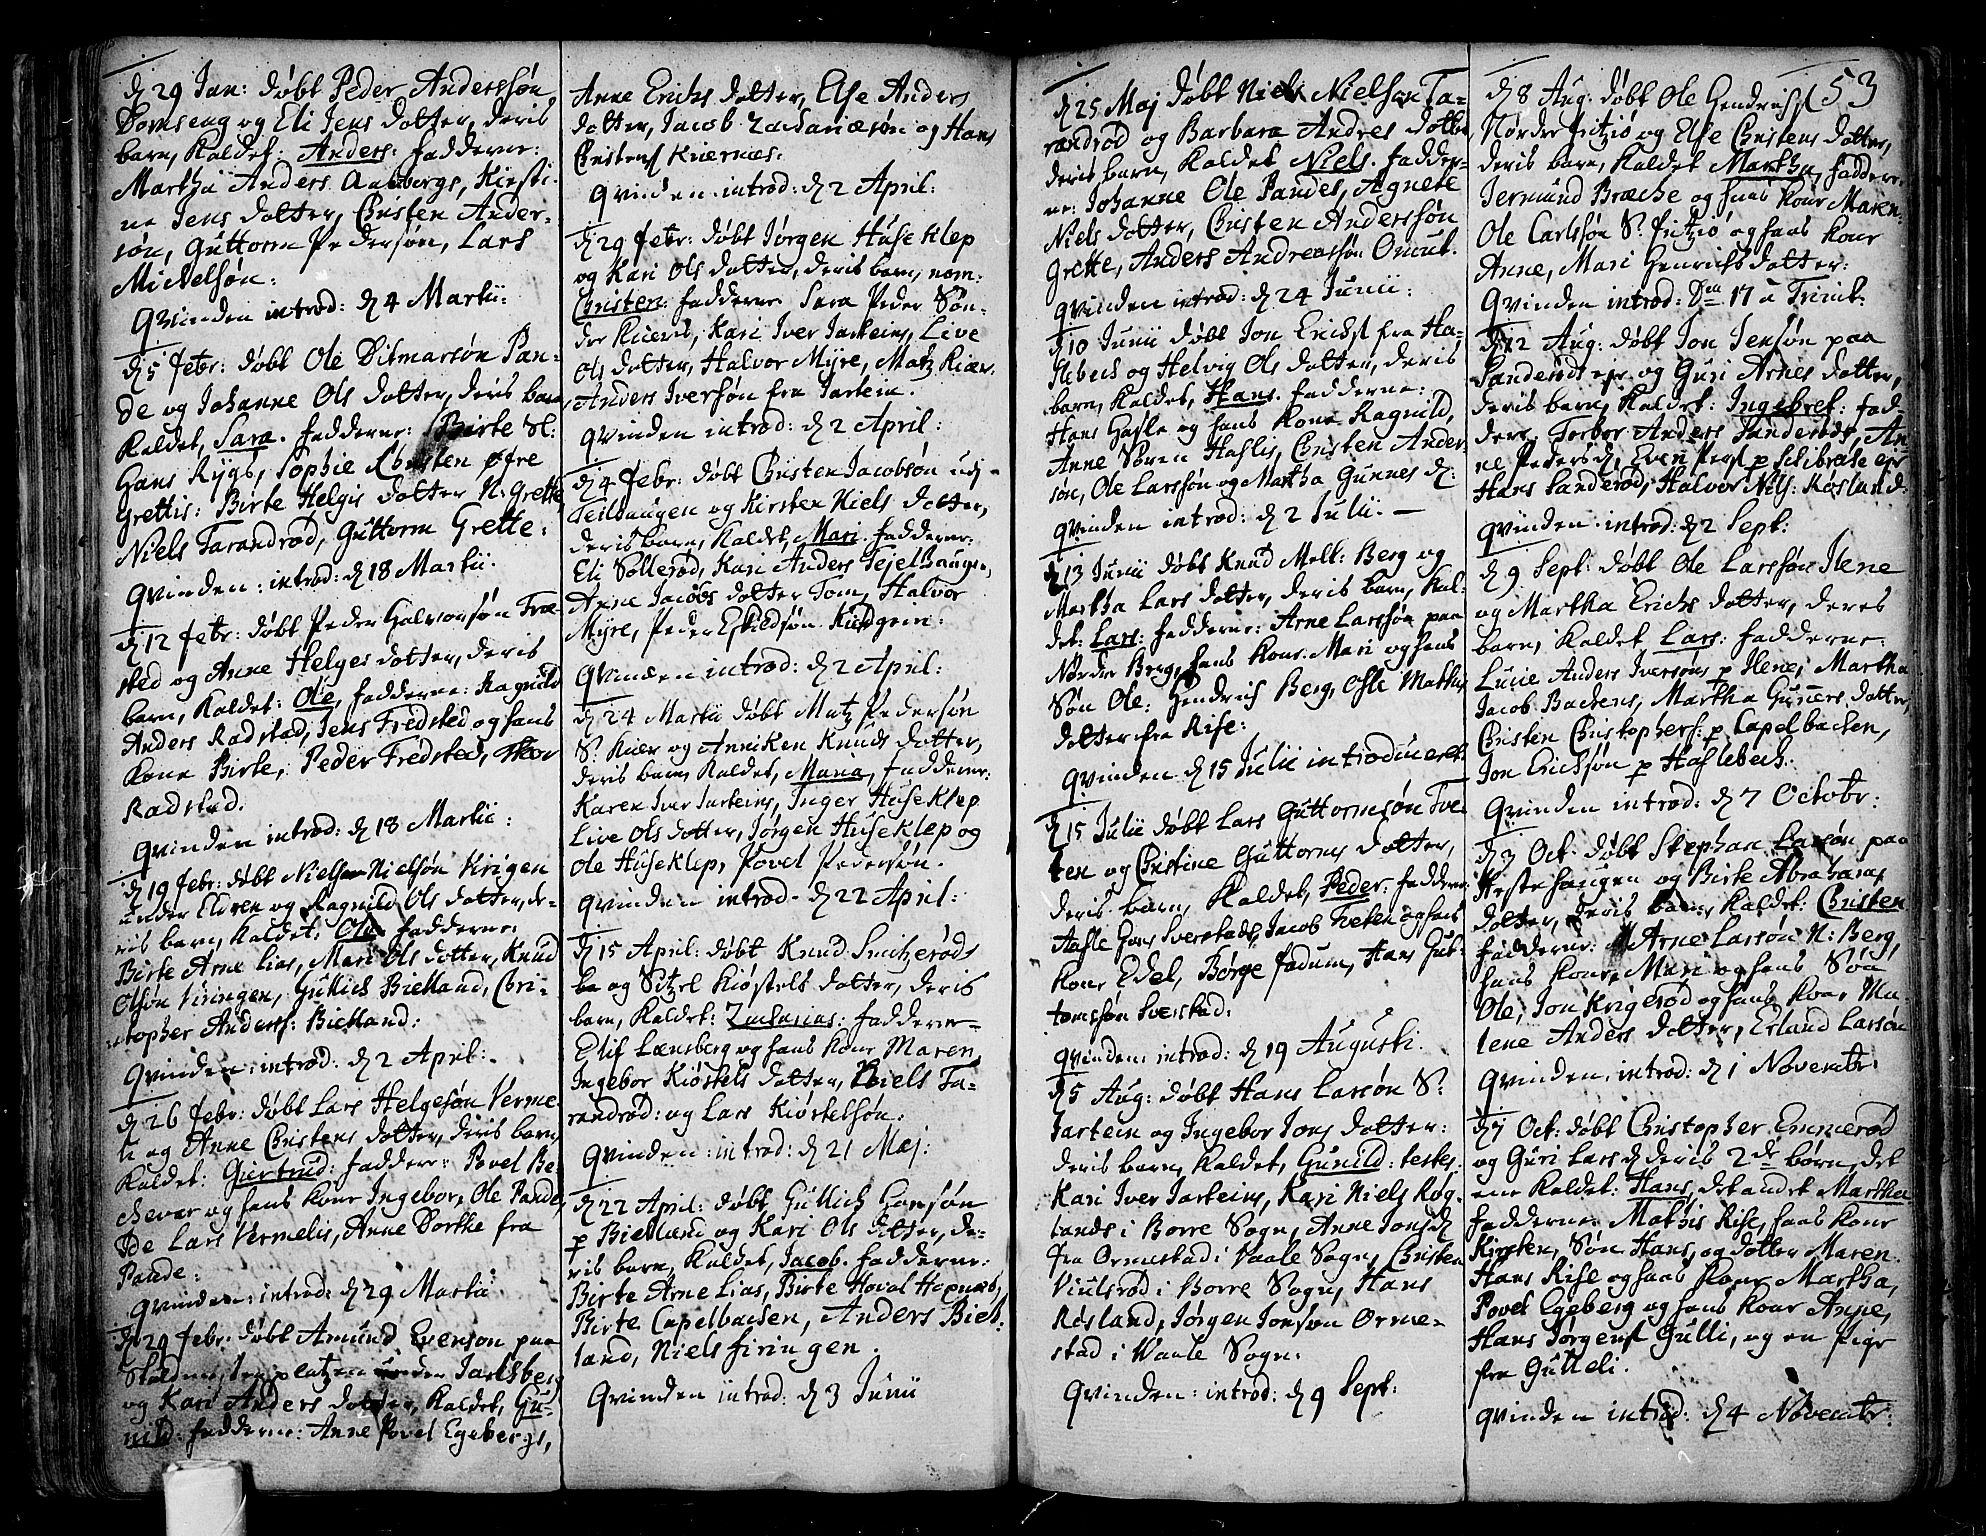 d. 29 Jan: døbt Peder Anderssøn
Domseng og Eli Jens dotter, deris
barn, kaldet: Anders: fadderne:
Martha Anders Aasbergs, Kirsti-
ne Jens dotter, Christen Ander-
søn, Guttorm Pedersøn, Lars
Mickelsøn:
Qvinden introd: d 4 Martii:
d 5 febr: døbt Ole Ditmarsøn Pan-
de og Johanne Ols dotter, deris barn
kaldet, Sara. fadderne: Birte Sl:
Hans Rygs, Sophie Christen øfre
Grettis: Birte Helgis dotter N: Grette
Niels Tarandrød, Guttorm Grette:
Qvinden: introd: d 18 Martii.
d 12 febr: døbt Peder Halvorsøn Fræ-
sted og Anne Helges dotter, deris
barn, kaldet: Ole, fadderne: Ragnild
Anders Radstad, Jens Fredsted og hans
kone Birte, Peder Fredsted,
Radstad.
Qvinden introd: d 18 Martii:
d 19 febr: døbt Nielssøn Krigen
under Eldren og Ragnild Ols dotter, de-
ris barn, kaldet: Ole fadderne:
Birte Arne Lias, Mari Ols dotter, Knud
Olsøn Viringen, Gullich Bielland, Chri-
stopher Anderss: Bielland:
Qvinden: introd: d 2 April:
d 26 febr: døbt Lars Helgesøn Verme-
li og Anne Christens dotter, deris barn
kaldet: Giertrud: faddere: Povel Be-
chevar og hans kone Ingebor, Ole Pande,
Ide Lars Vermelis, Anne Dorthe fra
Pande:
Qvinden: introd: d 29 Martii
d 29 febr: døbt Amund Evensøn paa
platzen under Jarlsberg
og Kari Anders dotter, kaldet, Gu-
nild: fadderne: Anne Povel Egebergs,
Anne Erichs dotter, Else Anders
dotter, Jacob Zachariæsøn og Hans
Christens Kiernæs:
Qvinden: introd: d 2 April:
d 29 febr: døbt Jørgen Huseklep
og Kari Ols dotter, deris barn, nom:
Christen: fadderne Sara Peder Søn-
dre Kiers, Kari Iver Jarteins, Live
Ols dotter, Halvor Myre, Matz Kiær,
Anders Iversøn fra Jartein.
Qvinden introd: d 2 April:
d 4 febr: døbt Christen Jacobsøn
Teilhaugen og Kirsten Niels dotter,
deris barn, kaldet, Mari. fadderne:
Eli Sollerød, Kari Anders Tejelhaugen,
Anne Jacobs dotter Tom, Halvor
Myre, Peder Eskildsøn
Qvinden introd: d 2 April:
d 24 Martii døbt Matz Pedersøn
S. Kier og Anniken Knuds dotter,
deris barn, kaldet, Maria, fadderne:
Karen Iver Jarteins, Inger Huseklep
Live Ols dotter, Jørgen Huseklep og
Ole Huseklep, Povel Pedersøn.
Qvinden introd. d 22 April:
d 15 April: døbt Knud Smitzerød
og Sitzel Kiøstels dotter, deris
barn, kaldet: Zacharias: fadderne
Elif Lænsberg og hans kone Maren
Ingebor Kiøstels dotter, Niels Ta-
randrød: og Lars Kiøstelsøn:
Qvinden: introd: d 21 Maj:
d 22 April: døbt Gullich Hansøn
p Bielland og Kari Ols dotter, de-
ris barn, kaldet, Jacob. fadderne:
Birte Arne Lias, Birte Hoval
Birte Capelbachen, Anders Biel-
land, Niels firingen.
Qvinden introd: d 3 Junii
d 25 Maj døbt Niels Nielsøn Ta-
randrød og Barbara Andres dotter
deris barn, kaldet Niels. fadder-
ne: Johanne Ole Pandes, Agnete
Niels dotter, Christen Anderssøn
Grette, Anders Andreasøn
Qvinden introd: d 24 Junii:
d 10 Junii døbt Jon Erichs fra Ha-
slebech og Helvig Ols dotter, deris
barn, kaldet, Hans. fadderne:
Hans Hasle og hans kone Ragnild,
Anne Søren Haslis, Christen Ander
søn, Ole Larssøn og Martha Gunnes d:
Qvinden introd: d 2 Julii. —
d 13 Junii døbt Knud Mell: Berg og
Martha Lars dotter, deris barn, kal-
det: Lars: fadderne: Arne Larssøn paa
Nordre Berg, hans kone Mari og hans
Søn Ole: Hendrich Berg, Osle Mathis
dotter fra Rise:
Qvinden d 15 Julii introduceret
d 15 Julii døbt Lars Guttormsøn Tve-
ten og Christine Guttorms dotter,
deris barn, kaldet, Peder: faddere
Aasle Hans Sverstads, Jacob Tveten og hans
kone Edel, Børge fadum, Hans Gut-
tormsøn Sverstad:
Qvinden: introd: d 19 Augusti.
d 5 Aug: døbt Hans Larsøn S.
Jartein og Ingebor Jons dotter:
deris barn, kaldet, Gunild: testes:
Kari Iver Jarteins, Kari Niels Røg-
lands i Borre Sogn, Anne Jons d
fra Ormestad i Vaale Sogn, Christen
Viulsrød i Borre Sogn, Hans
Røsland, Jørgen Jonsøn Orme-
stad i Vaale Sogn:
Qvinden: introd: d 9 Sept:
53
d 8 Aug: døbt Ole Hendrichs
Nordre fritziø og Else Christens dotter,
deris barn, kaldet Martha, faddere
Jermund Bræche og hans kone Maren
Ole Carlsøn S. fritziø og hans kone
Anne, Mari Henrichs dotter:
Qvinden introd: Dm 17 a Trinit.
d 12 Aug: døbt Jon Jensøn paa
Sanderød eje og Guri Arnes dotter,
deris barn, kaldet: Ingebret: fad-
dere, Torbor Anders Sanderøds, An-
ne Peders d, Even Pers p Skibræch eje
Hans Sanderød, Halvor Nils: Røsland.
Qvinden introd: d 2 Sept:
d 9 Sept: døbt Ole Larssøn Ilene
og Martha Erichs dotter, deres
barn, kaldet Lars: fadderne:
Lucie Anders Iversøns p Ilene, Martha
Jacob Bachens, Martha Gunners dotter,
Christen Christophers: p Capelbachen,
Jon Erichsøn p Haslebech:
Qvinden introd: d 7 Octobr:
d 3 Oct: døbt Stephan Larsøn paa
Hestehaugen og Birte Abrahams
dotter, deris barn, kaldet: Christen
fadderne: Arne Larsøn N: Berg,
hans kone Mari og hans Søn
Ole, Jon Krigerød og hans kone Ma-
lene Anders dotter, Erland Larsøn
Qvinden: introd: d 1 Novembr:
d 7 Oct: døbt Christopher Emmerød
og Guri Lars d deris 2de børn, det
ene kaldet: Hans, det andet Martha
fadderne: Mathis Rise, hans kone
Kirsten, Søn Hans, og dotter Maren.
Hans Rise og hans kone Martha,
Povel Egeberg og hans kone Anne,
Hans Jørgens Gulli, og en Pige
fra Gulleli.
Qvinden introd: d 4 Novembr: